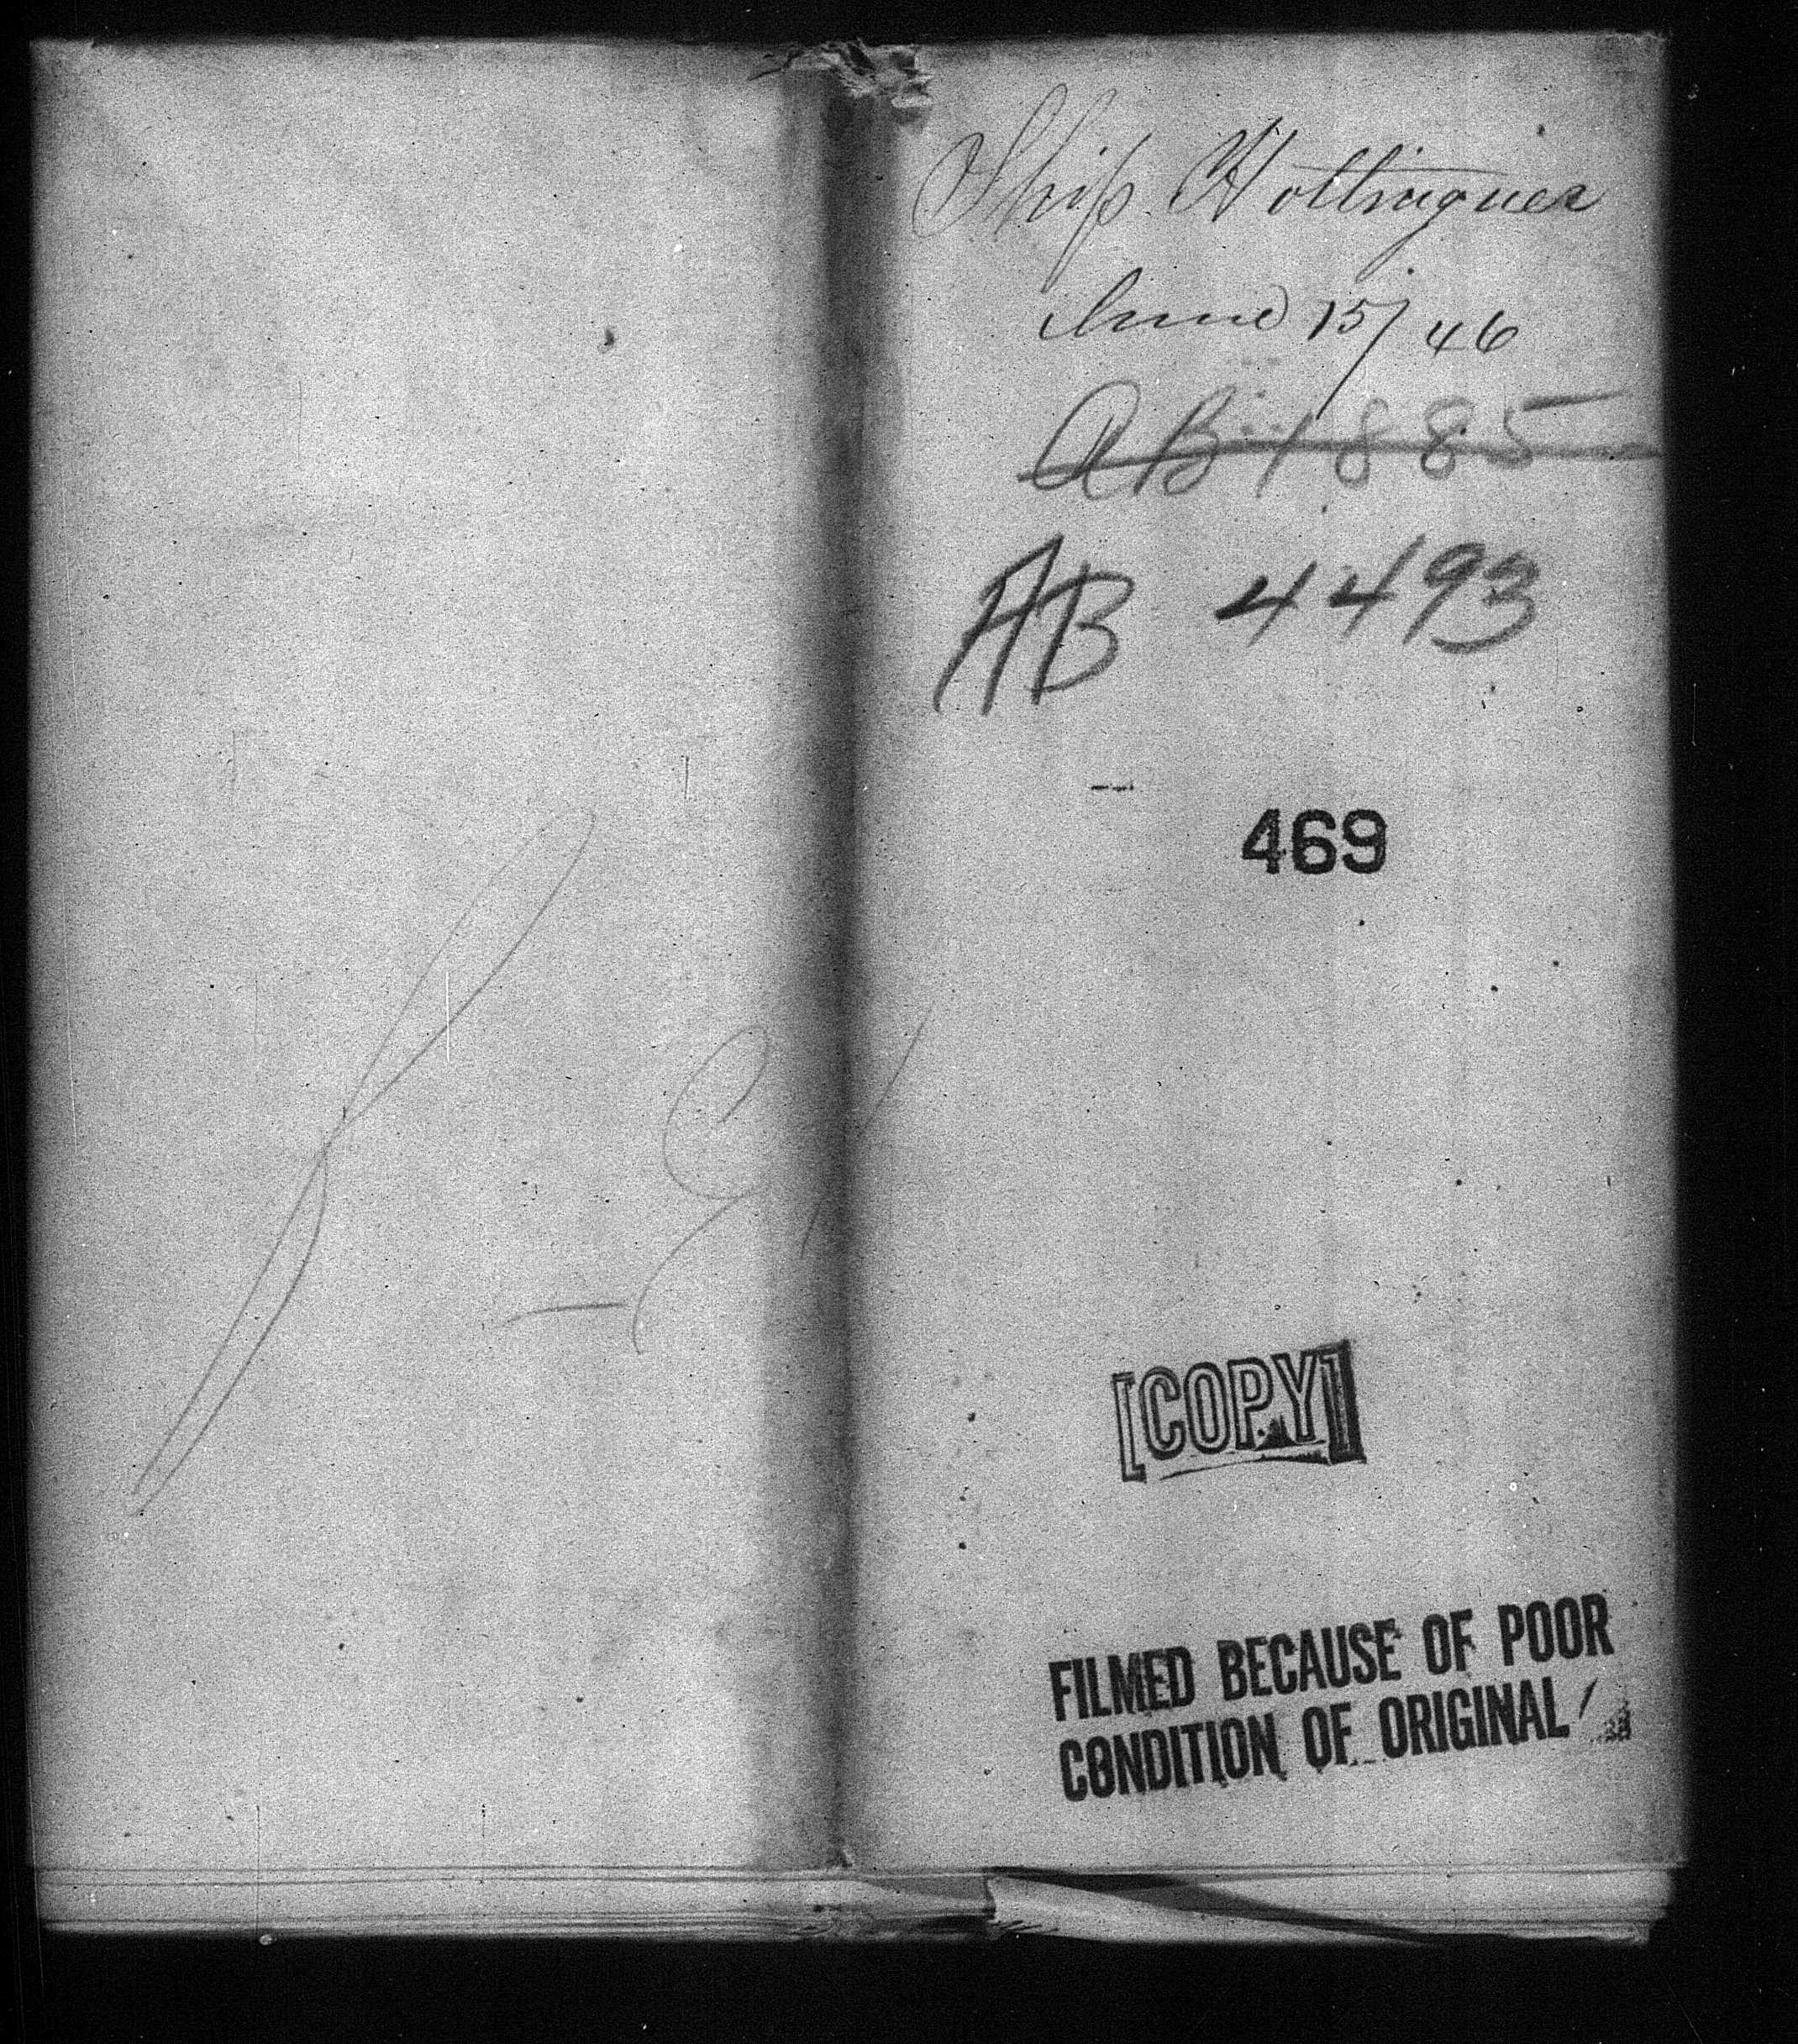 Ship Hottinguer
June 15/46
AB 1885
AB 4493
469
[COPY]
FILMED BECAUSE OF POOR
CONDITION OF ORIGINAL